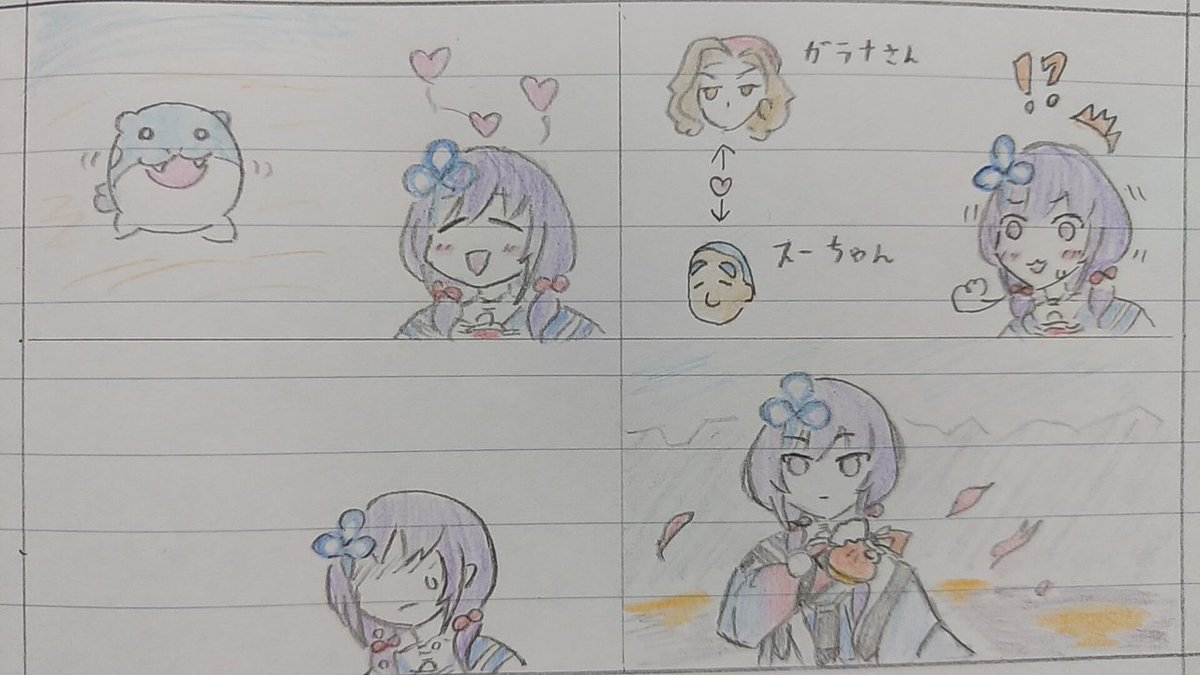 ガラナさん
!?
スーちゃん